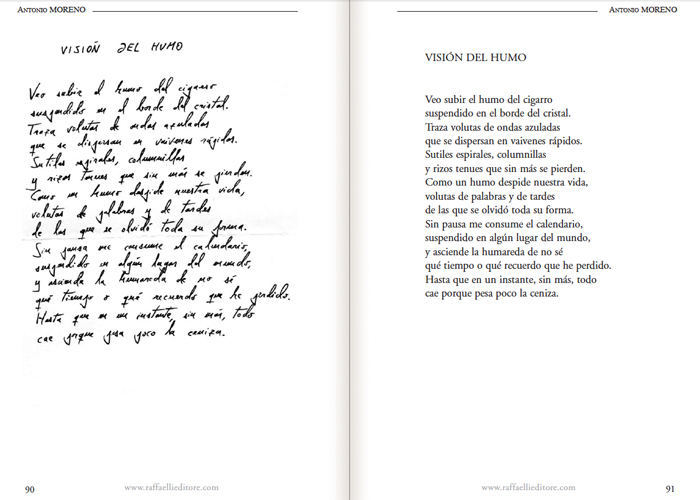 Antonio MORENO
VISIÓN DEL HUMO
Veo subir el humo del cigarro
suspendido en el borde del cristal.
Traza volutas de ondas azuladas
que se dispersan en vaivenes rápidos.
Sutiles espirales, columnillas
y rizos tenues que sin más se pierden.
Como un humo despide nuestra vida,
volutas de palabras y de tardes
de las que se olvidó toda su forma.
Sin pausa me consume el calendario,
suspendido en algún lugar del mundo,
y asciende la humareda de no sé
qué tiempo o qué recuerdo que he perdido.
Hasta que en un instante, sin más, todo
cae porque pesa poco la ceniza.
90
www.raffaellieditore.com
Antonio MORENO
VISIÓN DEL HUMO
Veo subir el humo del cigarro
suspendido en el borde del cristal.
Traza volutas de ondas azuladas
que se dispersan en vaivenes rápidos.
Sutiles espirales, columnillas
y rizos tenues que sin más se pierden.
Como un humo despide nuestra vida,
volutas de palabras y de tardes
de las que se olvidó toda su forma.
Sin pausa me consume el calendario,
suspendido en algún lugar del mundo,
y asciende la humareda de no sé
qué tiempo o qué recuerdo que he perdido.
Hasta que en un instante, sin más, todo
cae porque pesa poco la ceniza.
www.raffaellieditore.com
91